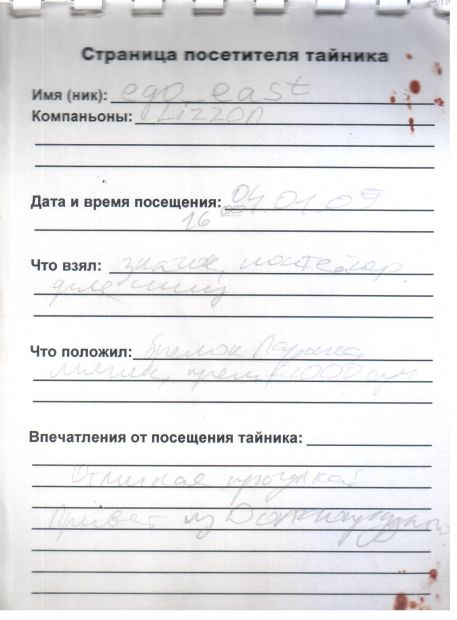 Страница посетителя тайника
Имя (ник): ego_east
Компаньоны: Lizzon
Дата и время посещения: 04.01.09
16 00
Что взял: значок, контейнер
для
Что положил: брелок
1000
Впечатления от посещения тайника:
Отличная прогулка!
Привет из